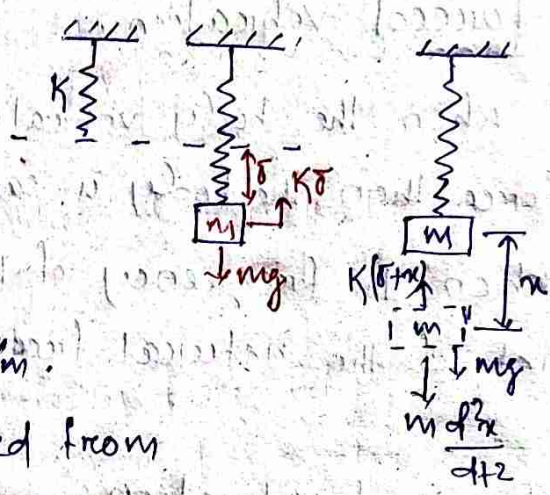 K
δ
Kδ
m
mg
m
K(δ+x)
x
m
mg
m d²x/dt²
m.
ed from